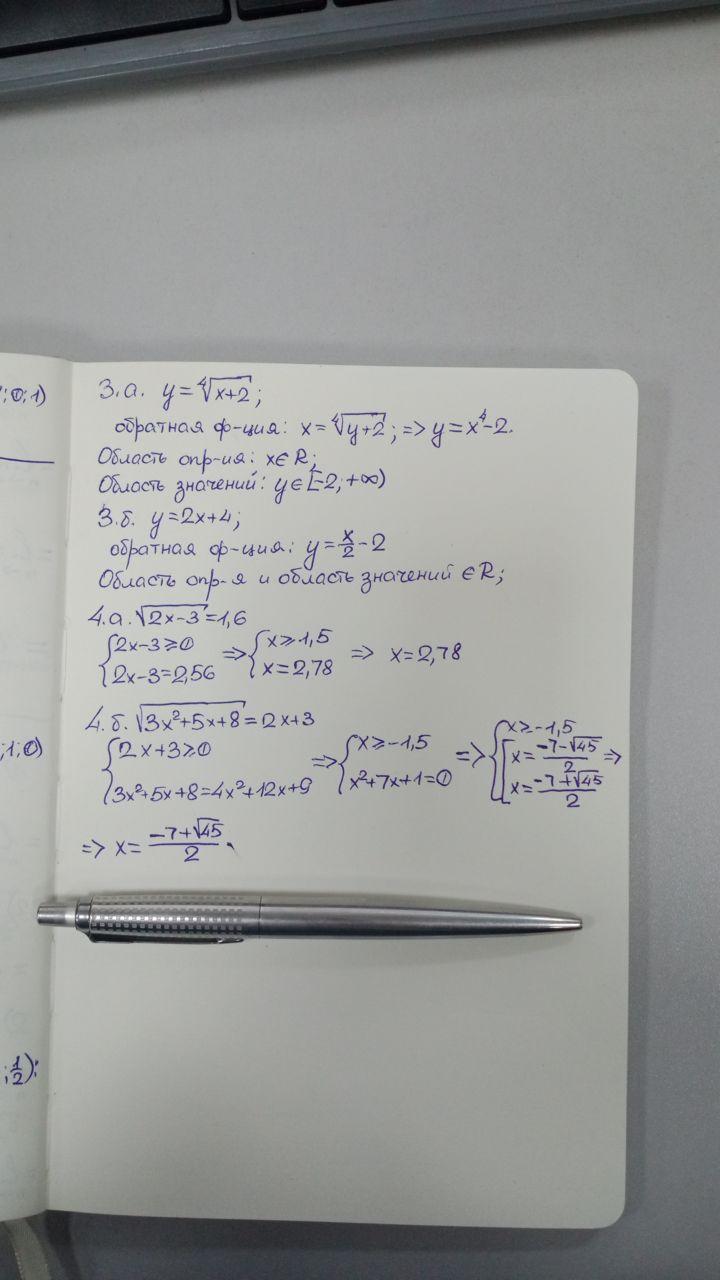 ;0;1)
3.а. y=∜(x+2);
обратная ф-ция: x=∜(y+2); => y=x⁴-2.
Область опр-ия: x∈R;
Область значений: y∈[-2; +∞)
3.б. y=2x+4;
обратная ф-ция: y=x/2-2
Область опр-я и область значений ∈R;
4.а. √(2x-3)=1,6
{2x-3≥0 => {x≥1,5 => x=2,78
{2x-3=2,56 {x=2,78
4.б. √(3x²+5x+8)=2x+3
;1;0)
{2x+3≥0 => {x≥-1,5 => {x≥-1,5
{3x²+5x+8=4x²+12x+9 {x²+7x+1=0 {[x=(-7-√45)/2 =>
[x=(-7+√45)/2
=> x=(-7+√45)/2.
;1/2);